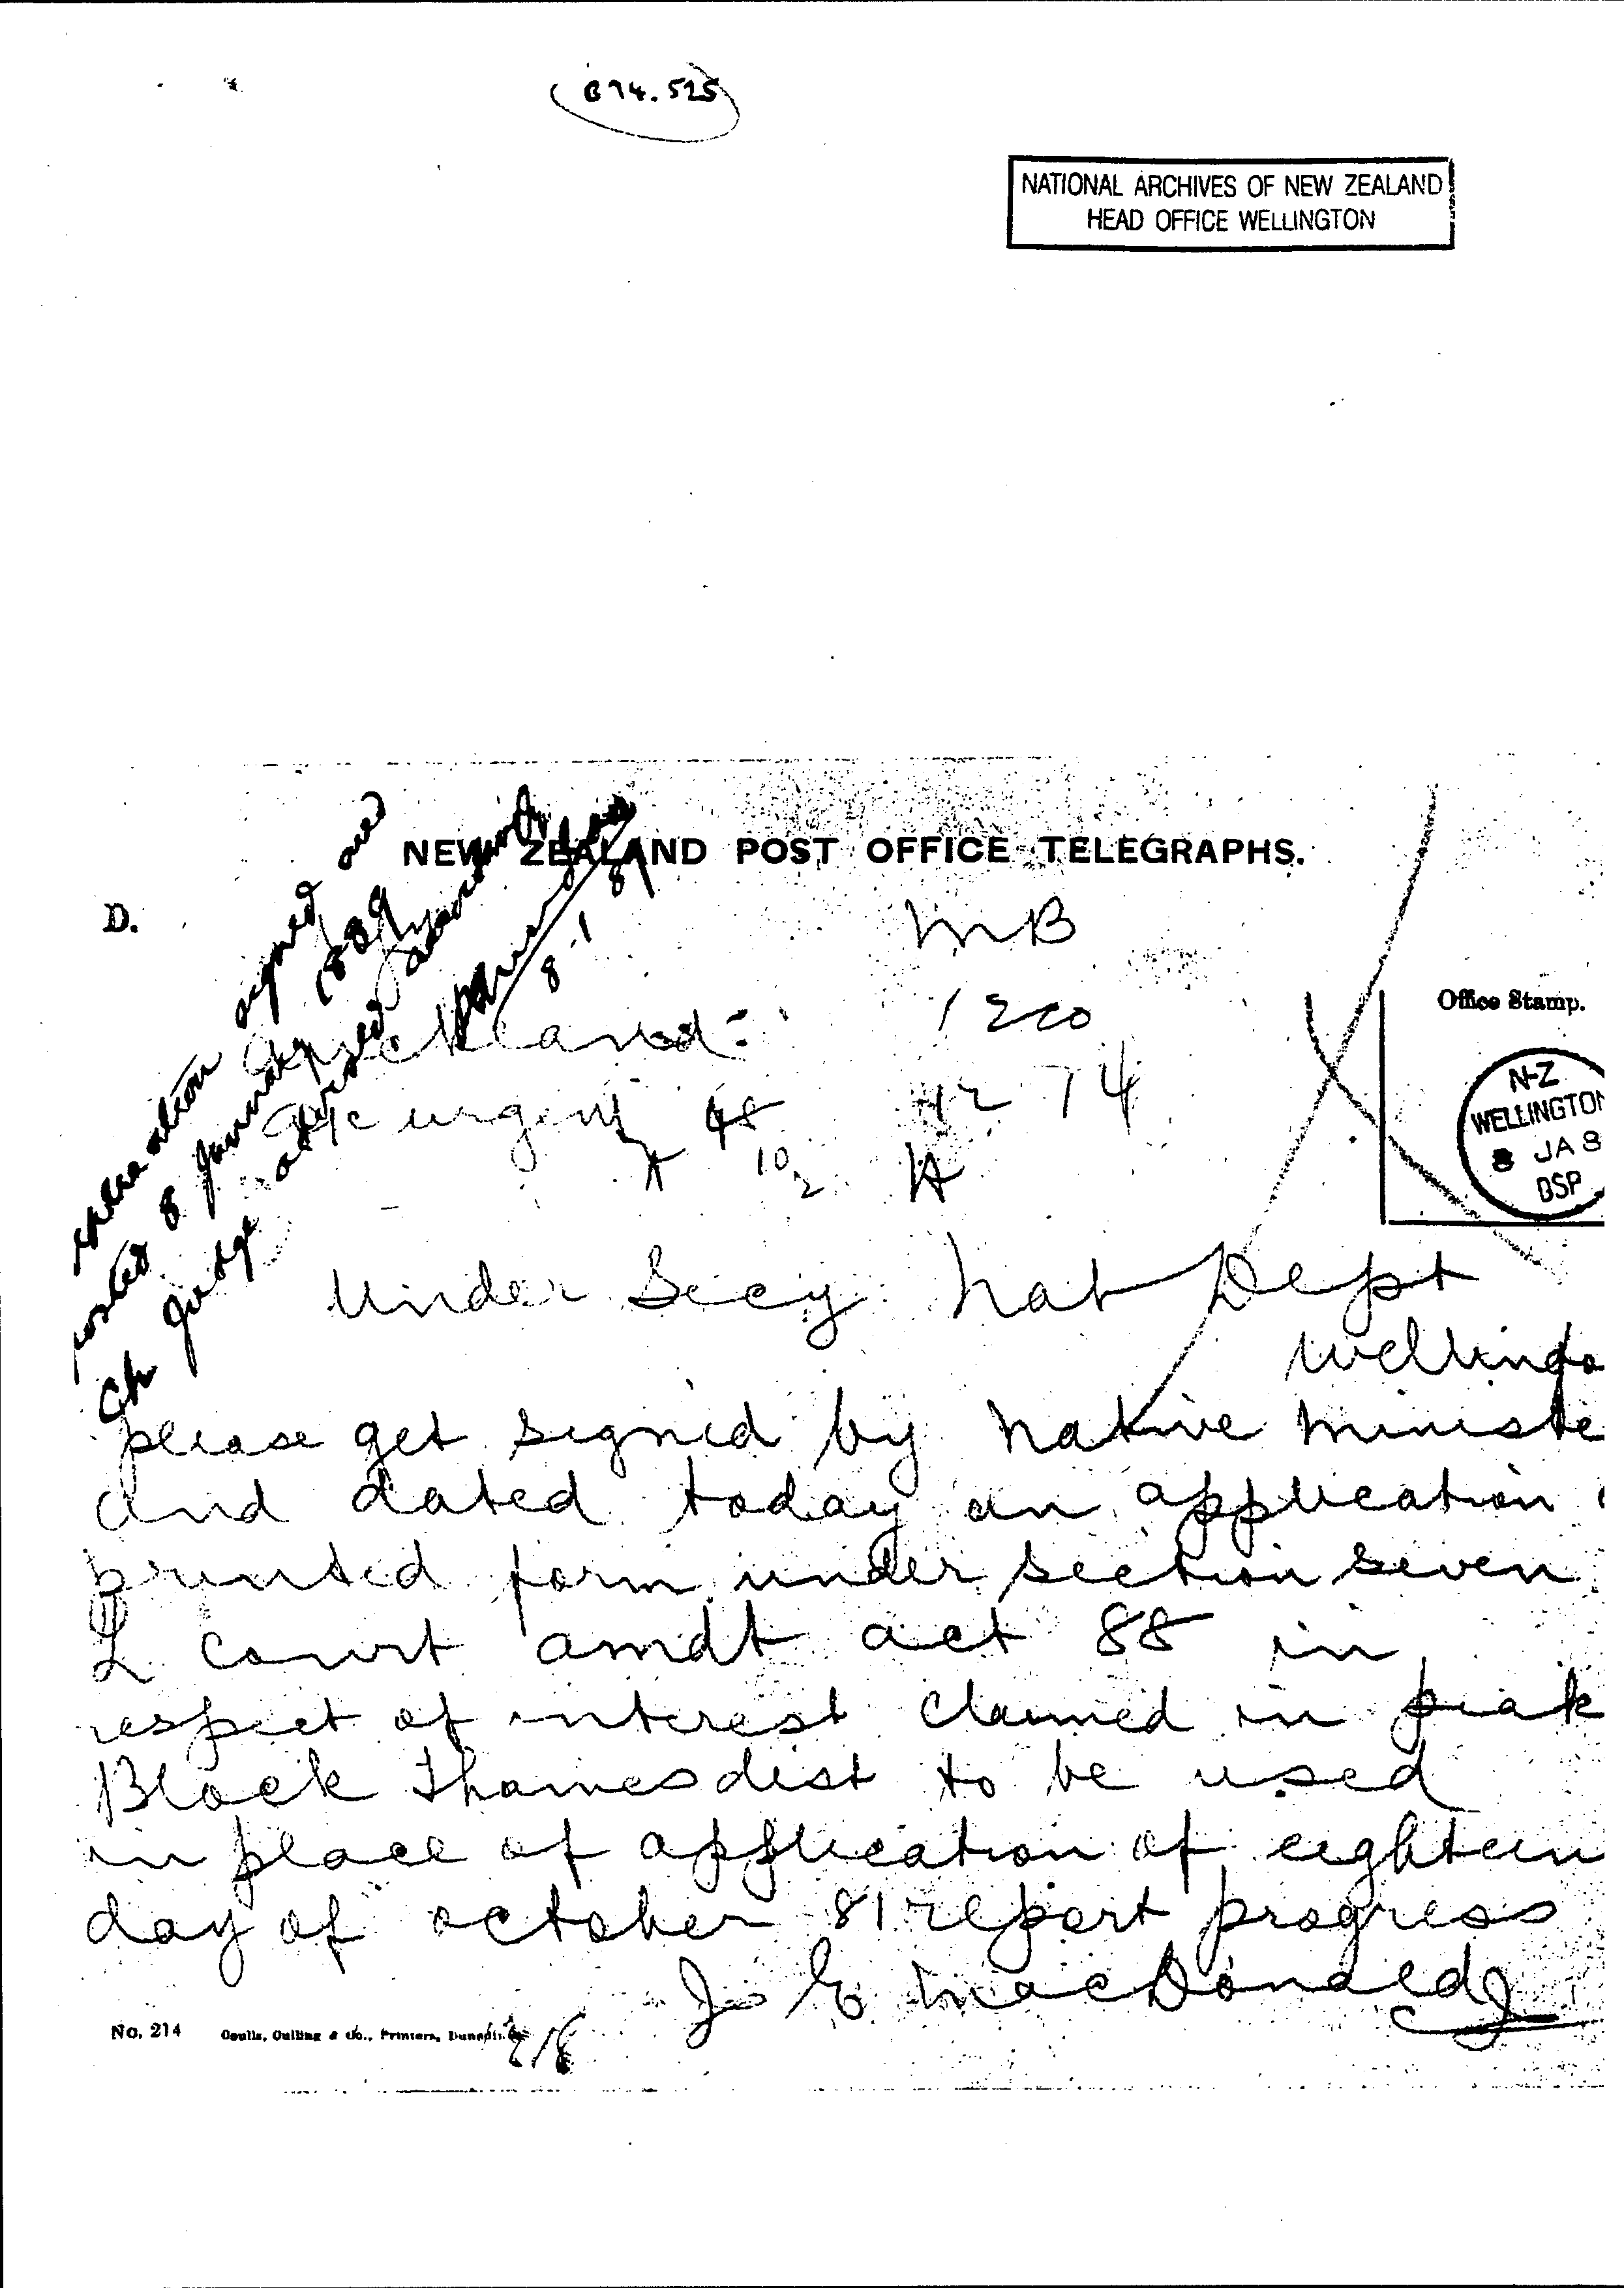 B74.525
NATIONAL ARCHIVES OF NEW ZEALAND
HEAD OFFICE WELLINGTON
NEW ZEALAND POST OFFICE TELEGRAPHS.
D.
signed and
8 January 1889
Ch Judge advised
8-1-89
MB
1200
Auckland
Office Stamp.
urgent 48 12 74
10
2
N-Z
WELLINGTON
8 JA 8
DSP
Under Secy Nat Dept
Wellingto
please get signed by Native Ministe
and dated today an application
printed form under section seven
L Court amdt act 88 in
respect of interest claimed in piak
Block Thames dist to be used
in place of application of eighteen
day of october 81 report progress
J E MacDonald
No. 214 Coulls, Culling & Co., Printers, Dunedin